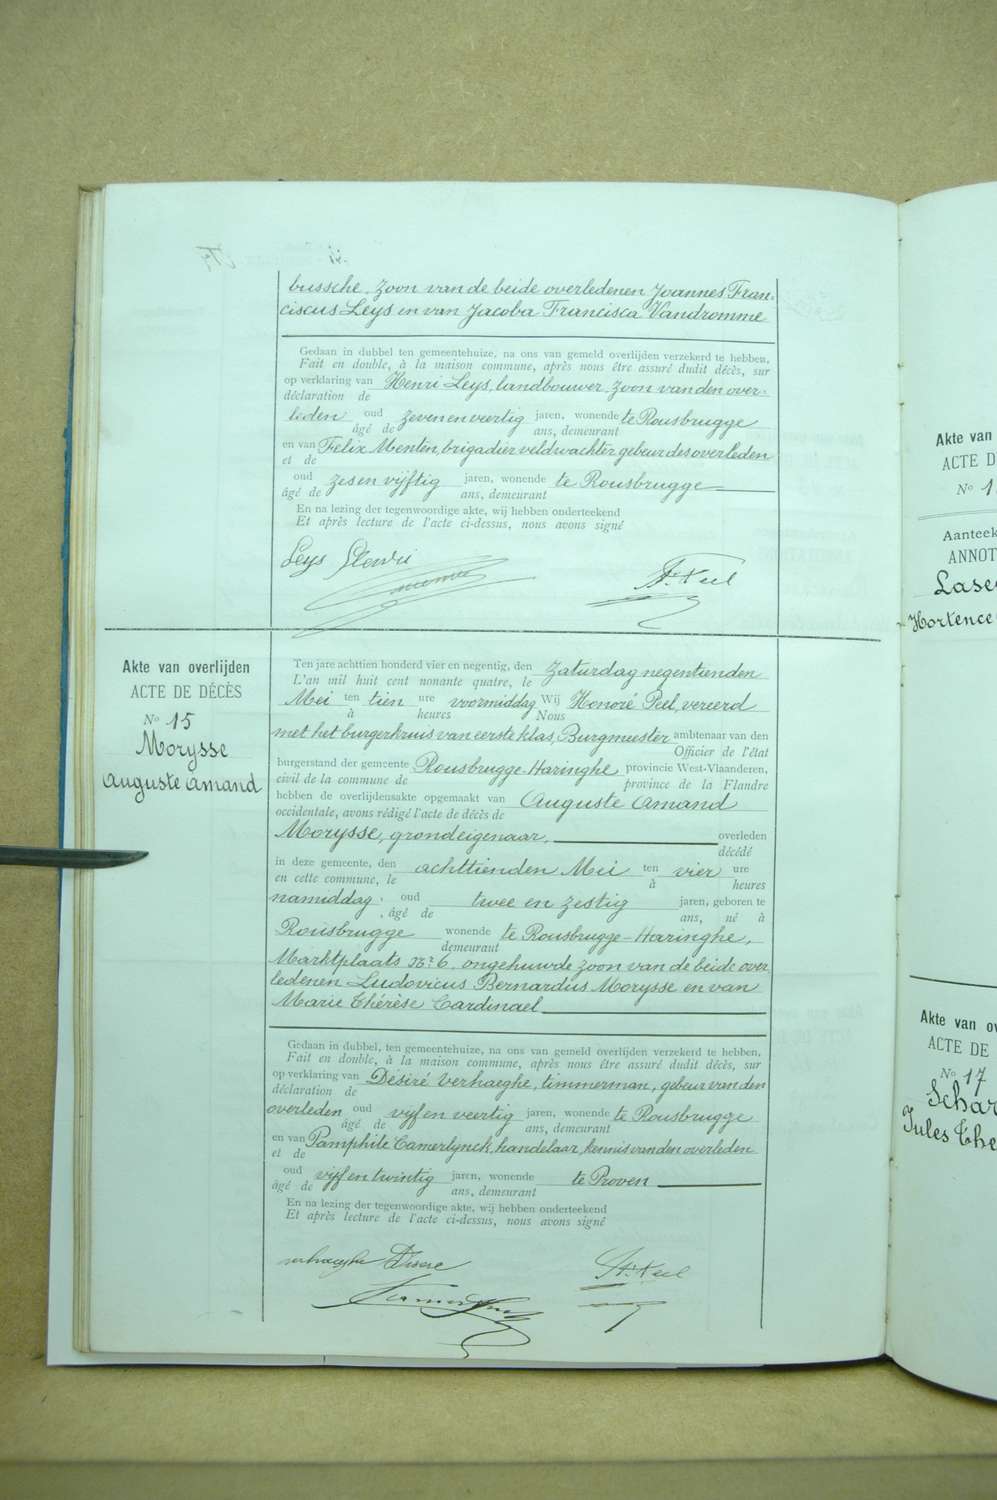 bussche, zoon van de beide overledenen Joannes Fran-
ciscus Leys en van Jacoba Francisca Vandromme
Gedaan in dubbel ten gemeentehuize, na ons van gemeld overlijden verzekerd te hebben,
Fait en double, à la maison commune, après nous être assuré dudit décès, sur
op verklaring van Henri Leys, landbouwer, zoon van den over-
déclaration de
leden oud zeven en veertig jaren, wonende te Rousbrugge
âgé de ans, demeurant
en van Felix Menten, brigadier veldwachter gebuer des overleden
et de
oud zes en vijftig jaren, wonende te Rousbrugge
âgé de ans, demeurant
En na lezing der tegenwoordige akte, wij hebben onderteekend
Et après lecture de l'acte ci-dessus, nous avons signé
Leys Henri
Akte van overlijden
ACTE DE DÉCÈS
No 15
Morysse
Auguste Amand
Ten jare achttien honderd vier en negentig, den Zaturdag negentienden
L'an mil huit cent nonante quatre, le
Mei ten tien ure voormiddag Wij Honoré Peel, vereerd
à heures Nous
met het burgerkruis van eerste klas, Burgmeester ambtenaar van den
Officier de l'état
burgerstand der gemeente Rousbrugge-Haringhe, provincie West-Vlaanderen,
civil de la commune de province de la Flandre
hebben de overlijdensakte opgemaakt van Auguste Amand
occidentale, avons rédigé l'acte de décès de
Morysse, grondeigenaar, overleden
décédé
in deze gemeente, den achttienden Mei ten vier ure
en cette commune, le à heures
namiddag, oud twee en zestig jaren, geboren te
âgé de ans, né à
Rousbrugge wonende te Rousbrugge-Haringhe,
demeurant
Marktplaats Nr 6, ongehuwde zoon van de beide over
ledenen Ludovicus Bernardus Morysse en van
Marie Thérèse Cardinael
Gedaan in dubbel, ten gemeentehuize, na ons van gemeld overlijden verzekerd te hebben,
Fait en double, à la maison commune, après nous être assuré dudit décès, sur
op verklaring van Désiré Verhaeghe, timmerman, gebuer van den
déclaration de
overleden oud vijf en veertig jaren, wonende te Rousbrugge
âgé de ans, demeurant
en van Pamphile Camerlynck, handelaar, kennis van den overleden
et de
oud vijf en twintig jaren, wonende te Proven
âgé de ans, demeurant
En na lezing der tegenwoordige akte, wij hebben onderteekend
Et après lecture de l'acte ci-dessus, nous avons signé
verhaeghe Désiré
Akte van
ACTE D
No 1
Aanteek
ANNOT
Hortence
Akte van ov
ACTE DE
No 17
Schar
Jules The